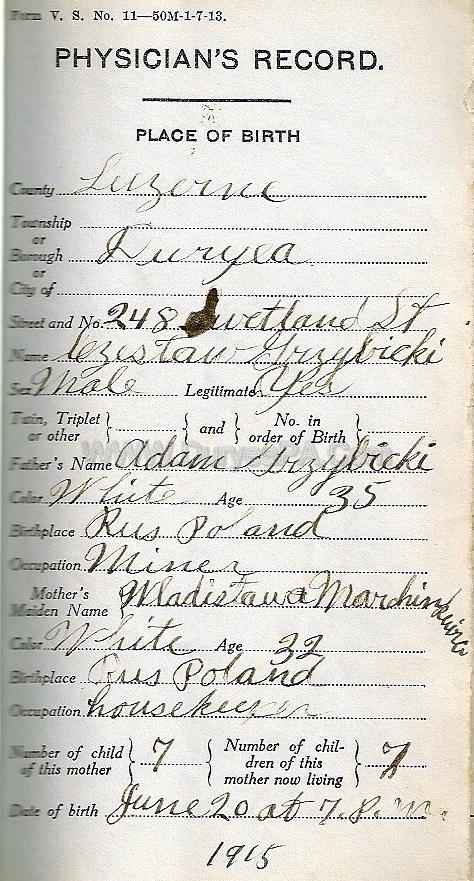 Form V. S. No. 11—50M-1-7-13.
PHYSICIAN'S RECORD.
PLACE OF BIRTH
County Luzerne
Township
or
Borough Duryea
or
City of
Street and No. 248 Swetland St
Name Czeslaw Grzybicki
Sex Male Legitimate Yes
Twin, Triplet or other } { and } { No. in order of Birth }
Father's Name Adam Grzybicki
Color White Age 35
Birthplace Rus Poland
Occupation Miner
Mother's Maiden Name Wladistawa Marchinkewicz
Color White Age 32
Birthplace Rus Poland
Occupation housekeeper
Number of child of this mother } 7 { Number of children of this mother now living } 7
Date of birth June 20 at 7. P. m.
1915